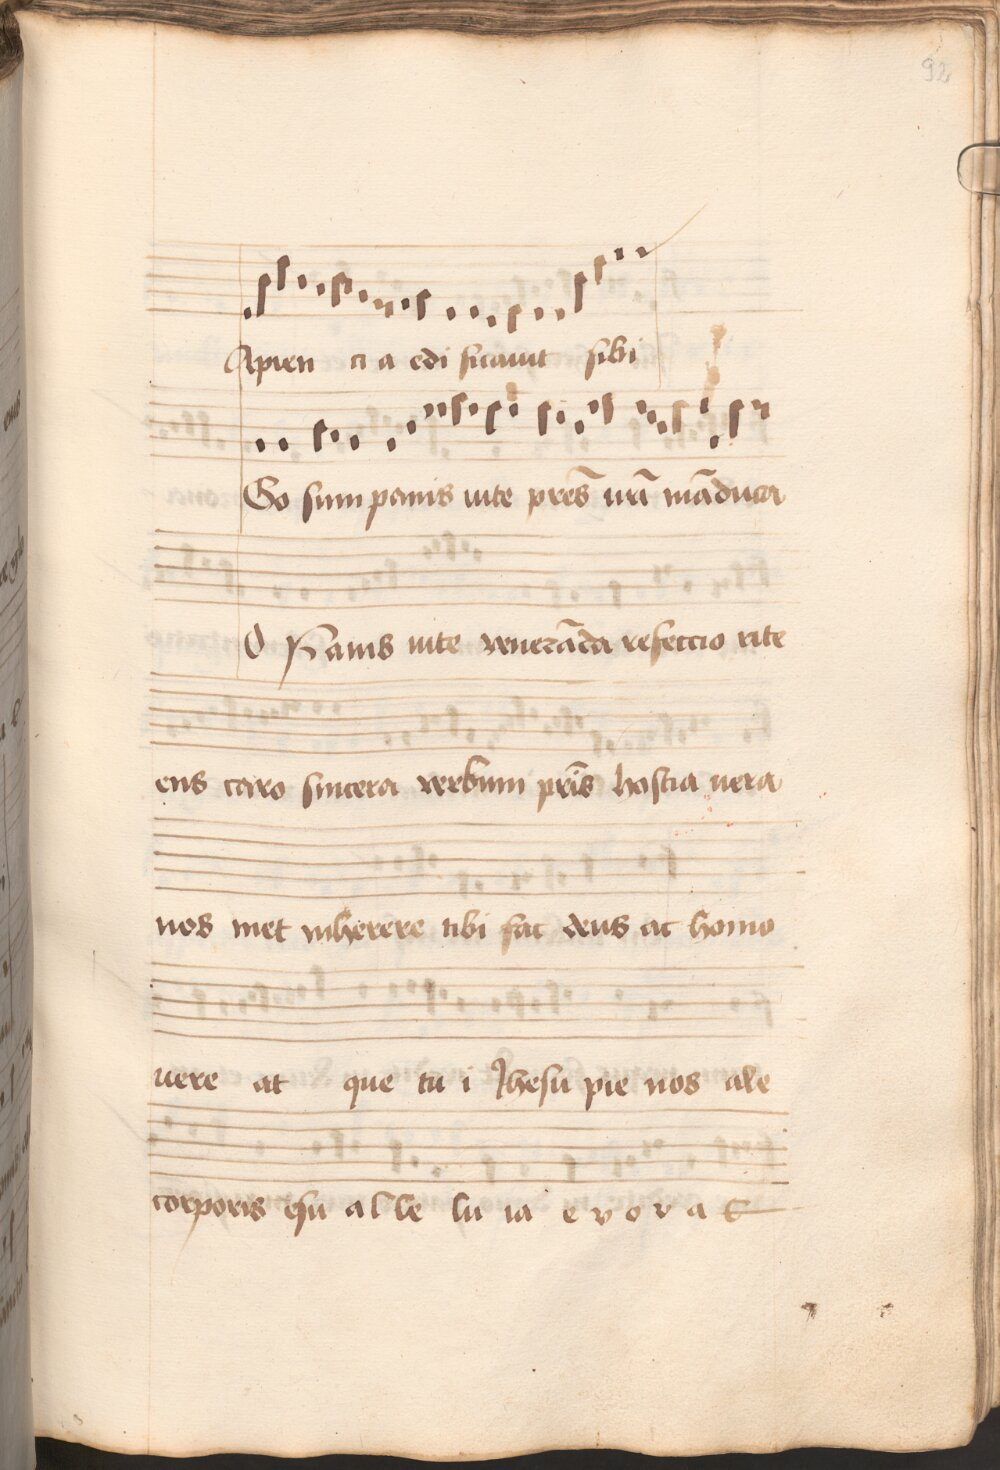 92
Apien ci a edi ficauit sibi
Go sum panis uite pres̄ urī māduca
O Panis uite venerāda refectio rite
ens caro sincera verbum pris̄ hostia uera
nos met inherere tibi fac deus ac homo
uere at que tu i Jhesu pie nos ale
corporis esu al le lu ia e v o v a E